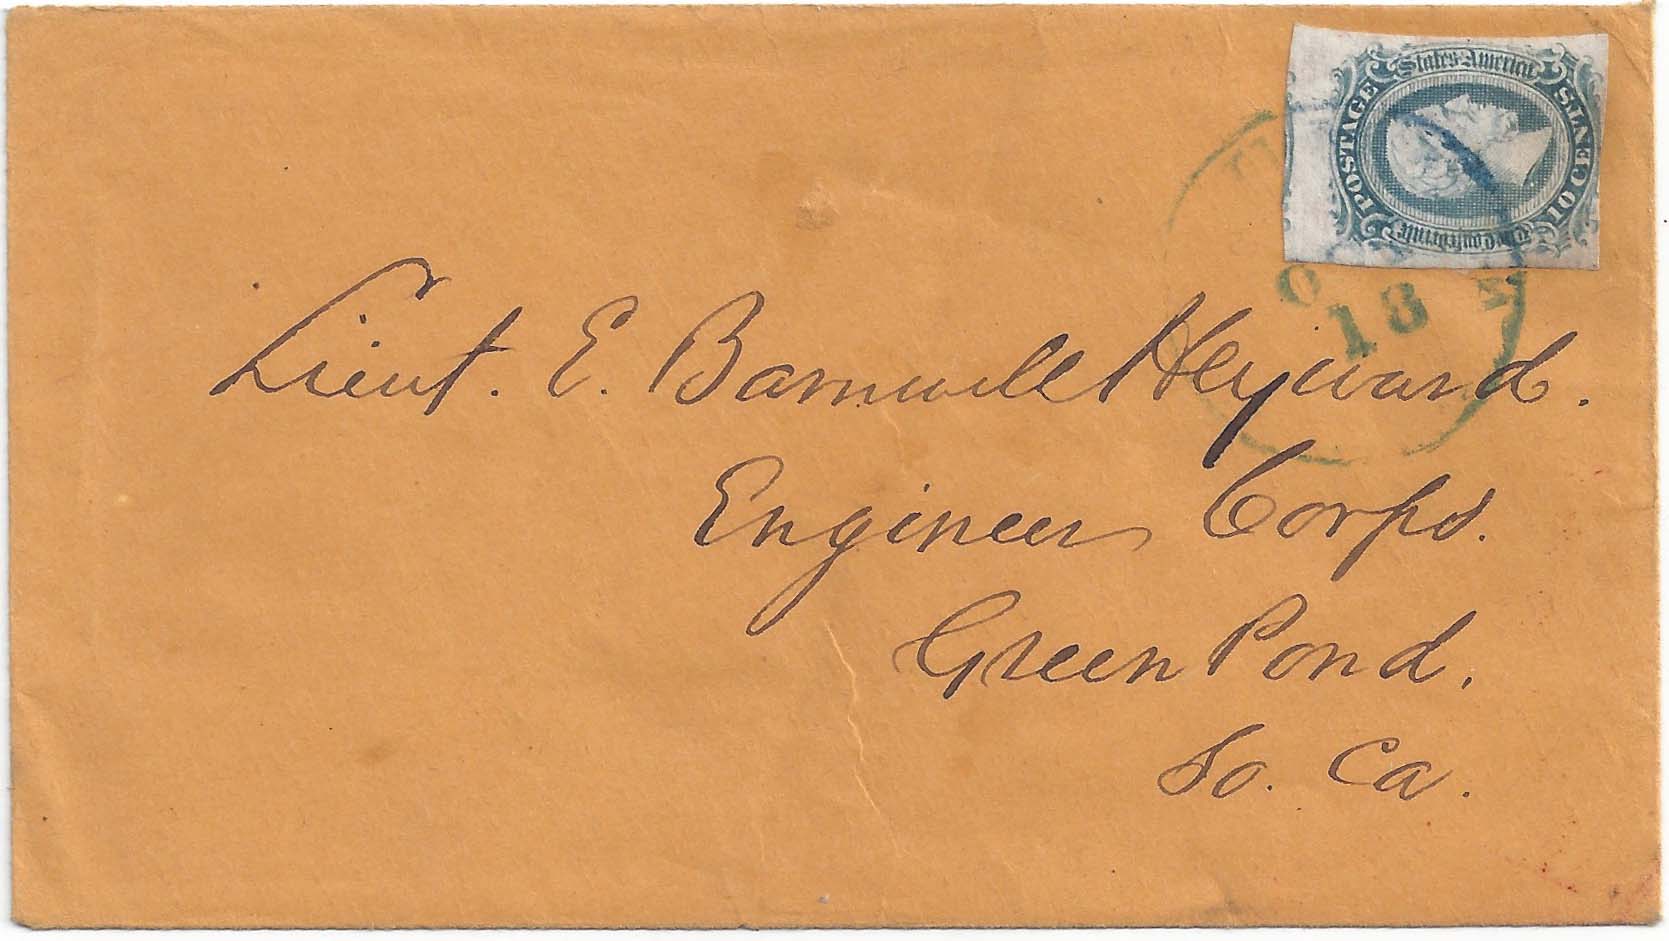 The Confederate States America
POSTAGE
10 CENTS
18
Lieut. E. Barnwell Heyward.
Engineer Corps.
Green Pond.
So. Ca.